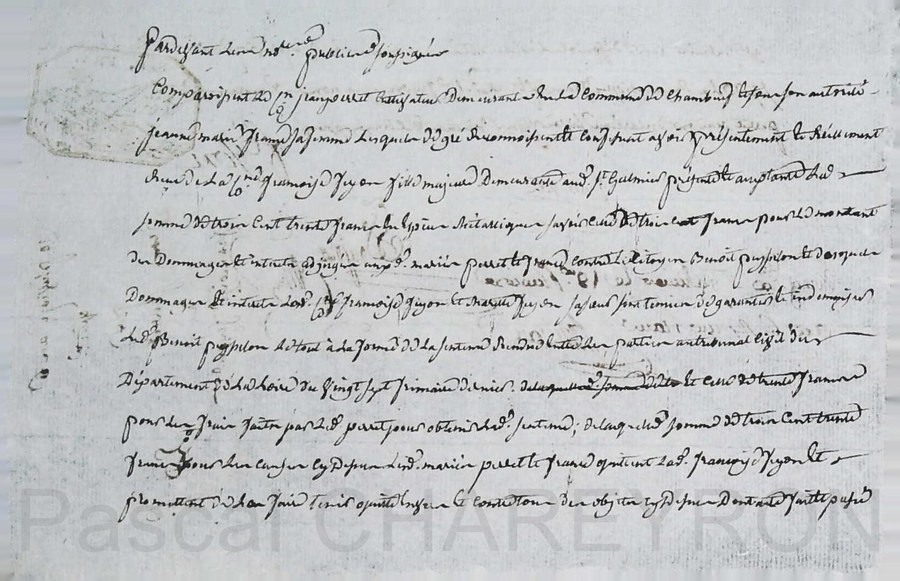 Pardevant les nres publics soussignés
Comparoissent le Cn jean perret cultivateur demeurant en la Commune de Chambœuf et sous son autorité
jeanne marie franc sa femme lesquels de gré reconnoissent et confessent avoir présentement et réellement
reçu de la Cne françoise fuyen fille majeure demeurante aud. St Galmier présente et acceptante la
somme de trois cent trente francs en espèces métalliques savoir celle de trois cent francs pour le montant
des Dommages et interets adjugés auxd. mariés perret et franc contre le citoyen Benoit pupelon et desquels
Dommages et interets les Cnes françoise fuyen et fuyen sa sœur sont tenues de garantir et indemniser
led. Benoit pupelon le tout à la forme de la sentence rendue entre les parties au tribunal civil du
Département de la Loire du vingt sept frimaire dernier, et celle de trente francs
pour les frais faits par led. perret pour obtenir lad. sentence; de laquelle somme de trois cent trente
francs pour les causes cy dessus lesd. mariés perret et franc quittent lad. françoise fuyen et
promettent de la faire tenir quitte envers et contre tous des objets cy dessus Dont acte fait et passé
Pascal CHAREYRON